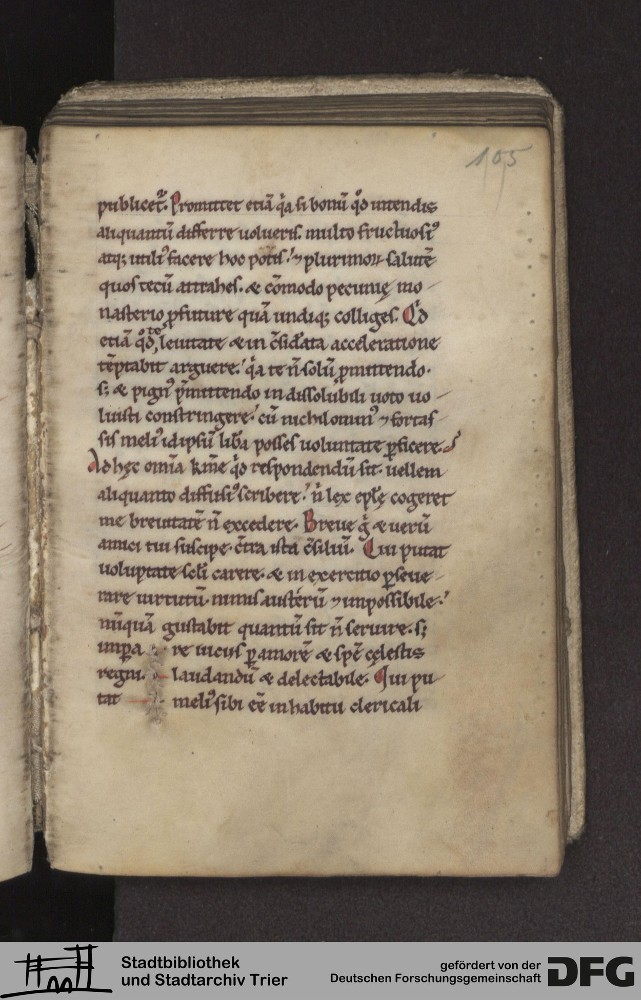 105
publicet᷑. Promittet etiā q̇a si bonū qd̓ intendis
aliquantū differre uolueris. multo fructuosi᷒
atq; utili᷒ facere hoc potis. ⁊ plurimoꝝ salutē
quos tecū attrahes. & cōmodo pecunię mo-
nasterio ꝓfuture quā undiq; colliges. Qd̓
etiā qd̓ te leuitate & in c̄sid̓ata acceleratione
tēptabit arguere. q̇a te n̄ solū ꝓmittendo.
s; & pign᷒ p̄mittendo in dissolubili uoto uo-
luisti constringere. cū nichilomin᷒ & fortas-
sis meli᷒ id ipsū lib̓a posses uoluntate ꝑficere.
Ad hęc omīa km̄e qd̓ respondendū sit. uellem
aliquanto diffusi᷒ scribere. n̄ lex epl̄ę cogeret
me breuitatē n̄ excedere. Breue g̓ & uerū
amici tui suscipe c̄tra ista c̄siliū. Cui putat
uoluptate sc̄li carere. & in exercitio ꝑseue-
rare uirtutū. nimis austerū ⁊ impossibile.
nūquā gustabit quantū sit n̄ seruire. s;
impa re uiciis ꝑ amorē & spē cęlestis
regni. laudandū & delectabile. Qui pu
tat meli᷒ sibi eē in habitu clericali
Stadtbibliothek
und Stadtarchiv Trier
gefördert von der
Deutschen Forschungsgemeinschaft
DFG